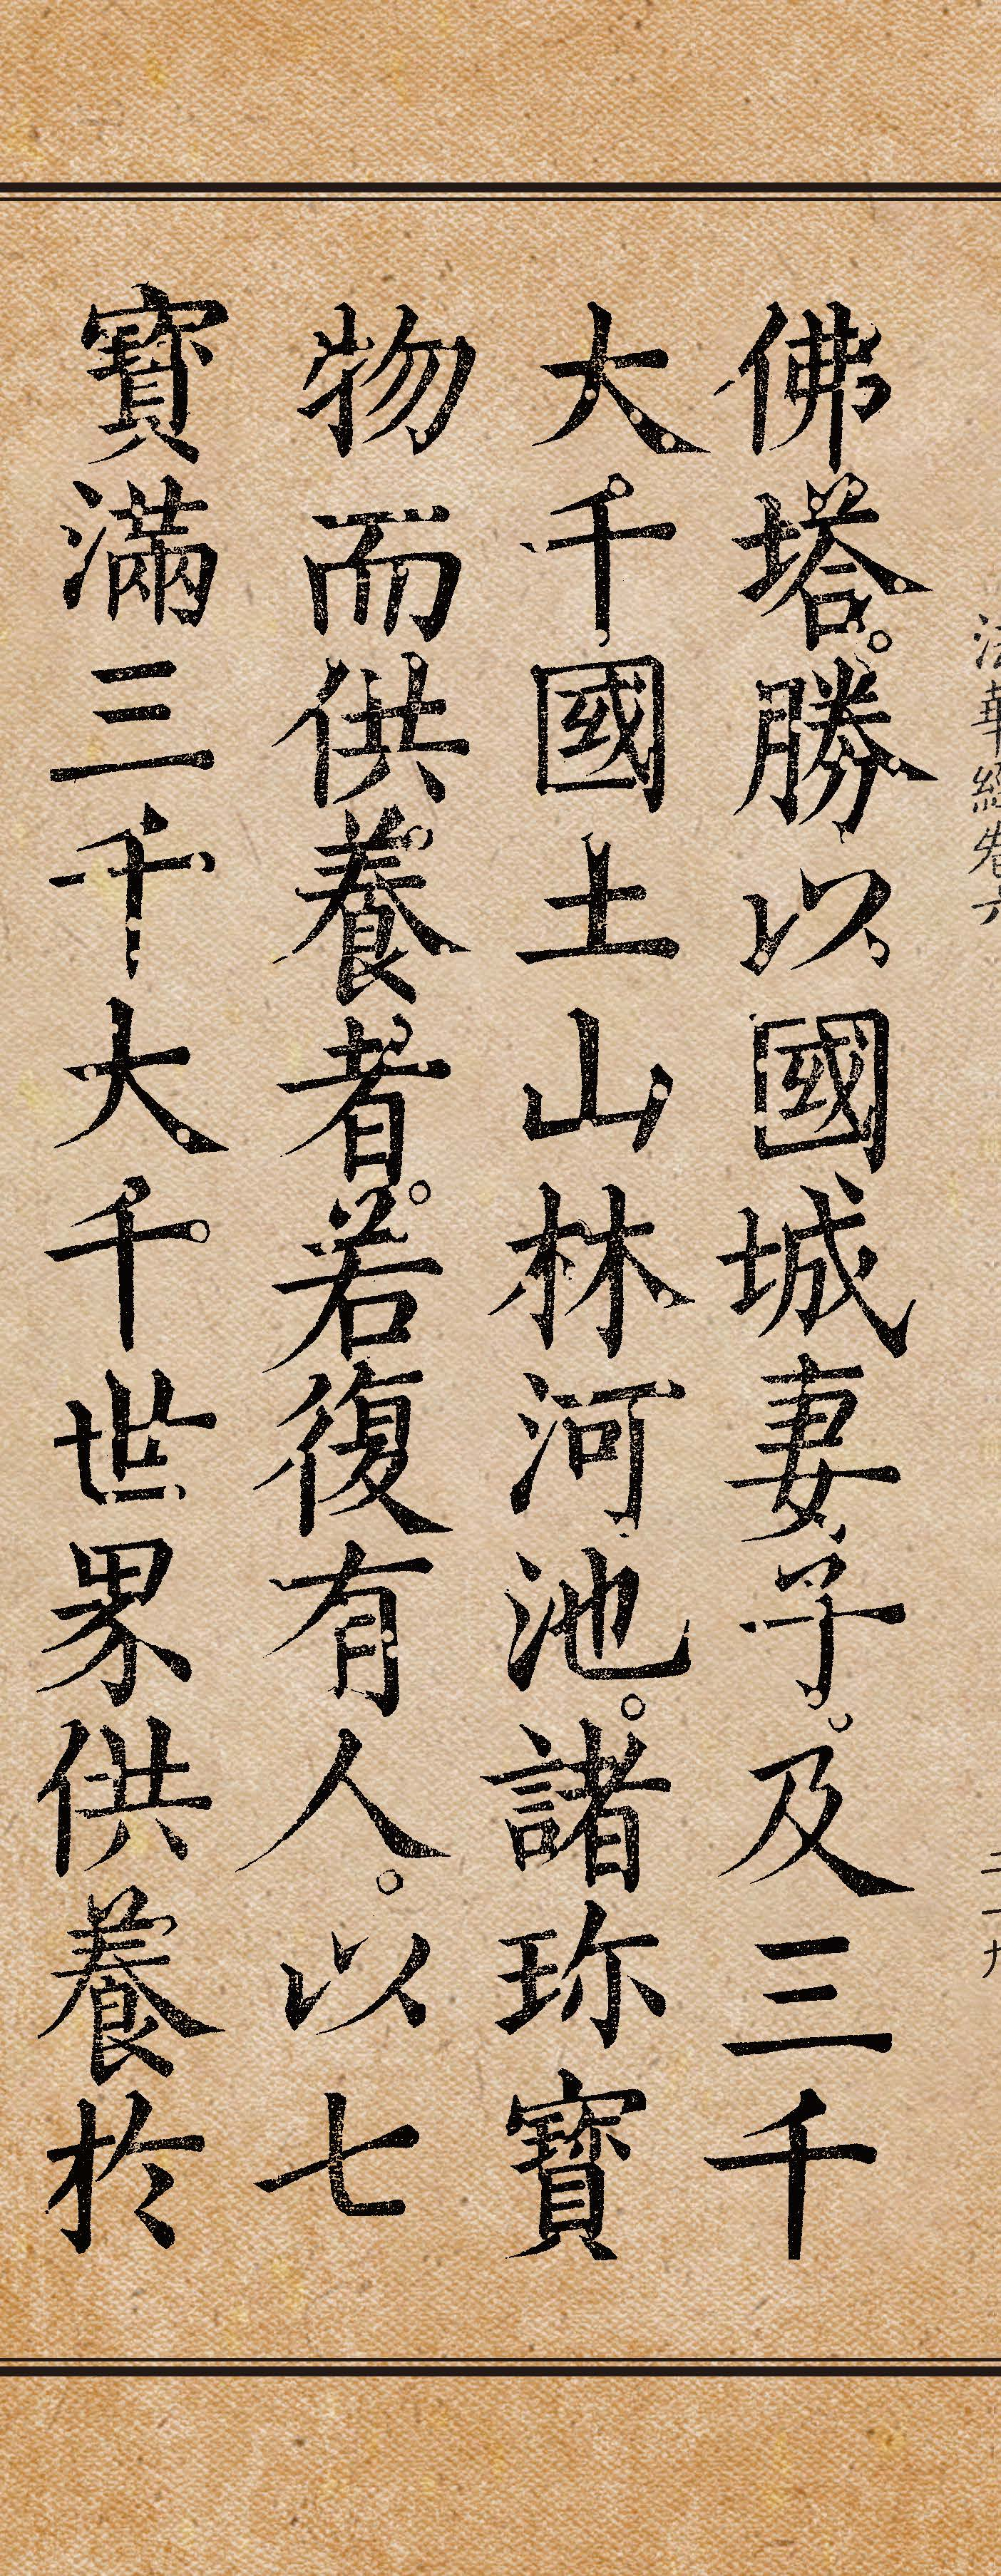 法華經卷六 二十九
佛塔。勝以國城妻子。及三千
大千國土山林河池。諸珎寶
物而供養者。若復有人。以七
寶滿三千大千世界供養於